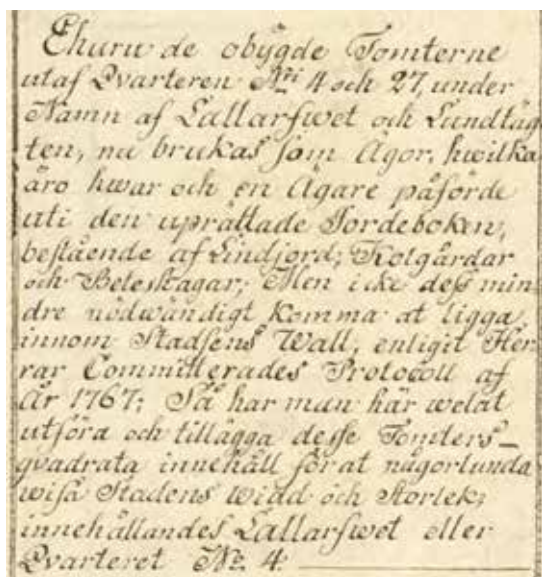 Ehuru de obygde Tomterne
utaf Qvarteren Nri 4 och 27, under
Namn af Lallarfwet och Lundtäg
ten, nu brukas som Ägor, hwilka
äro hwar och en Ägare påförde
uti den uprättade Jordeboken,
bestående af Lindjord; Kolgårdar
och Beteshagar; Men icke dess min
dre nödwändigt komma at ligga
innom Stadsens Wall, enligit Her
rar Committerades Protocoll af
År 1767; Så har man här welat
utföra och tillägga desse Tomters_
qvadrata innehåll för at någorlunda
wisa Stadens widd och Storlek;
innehållandes Lallarfwet eller
Qvarteret No. 4.